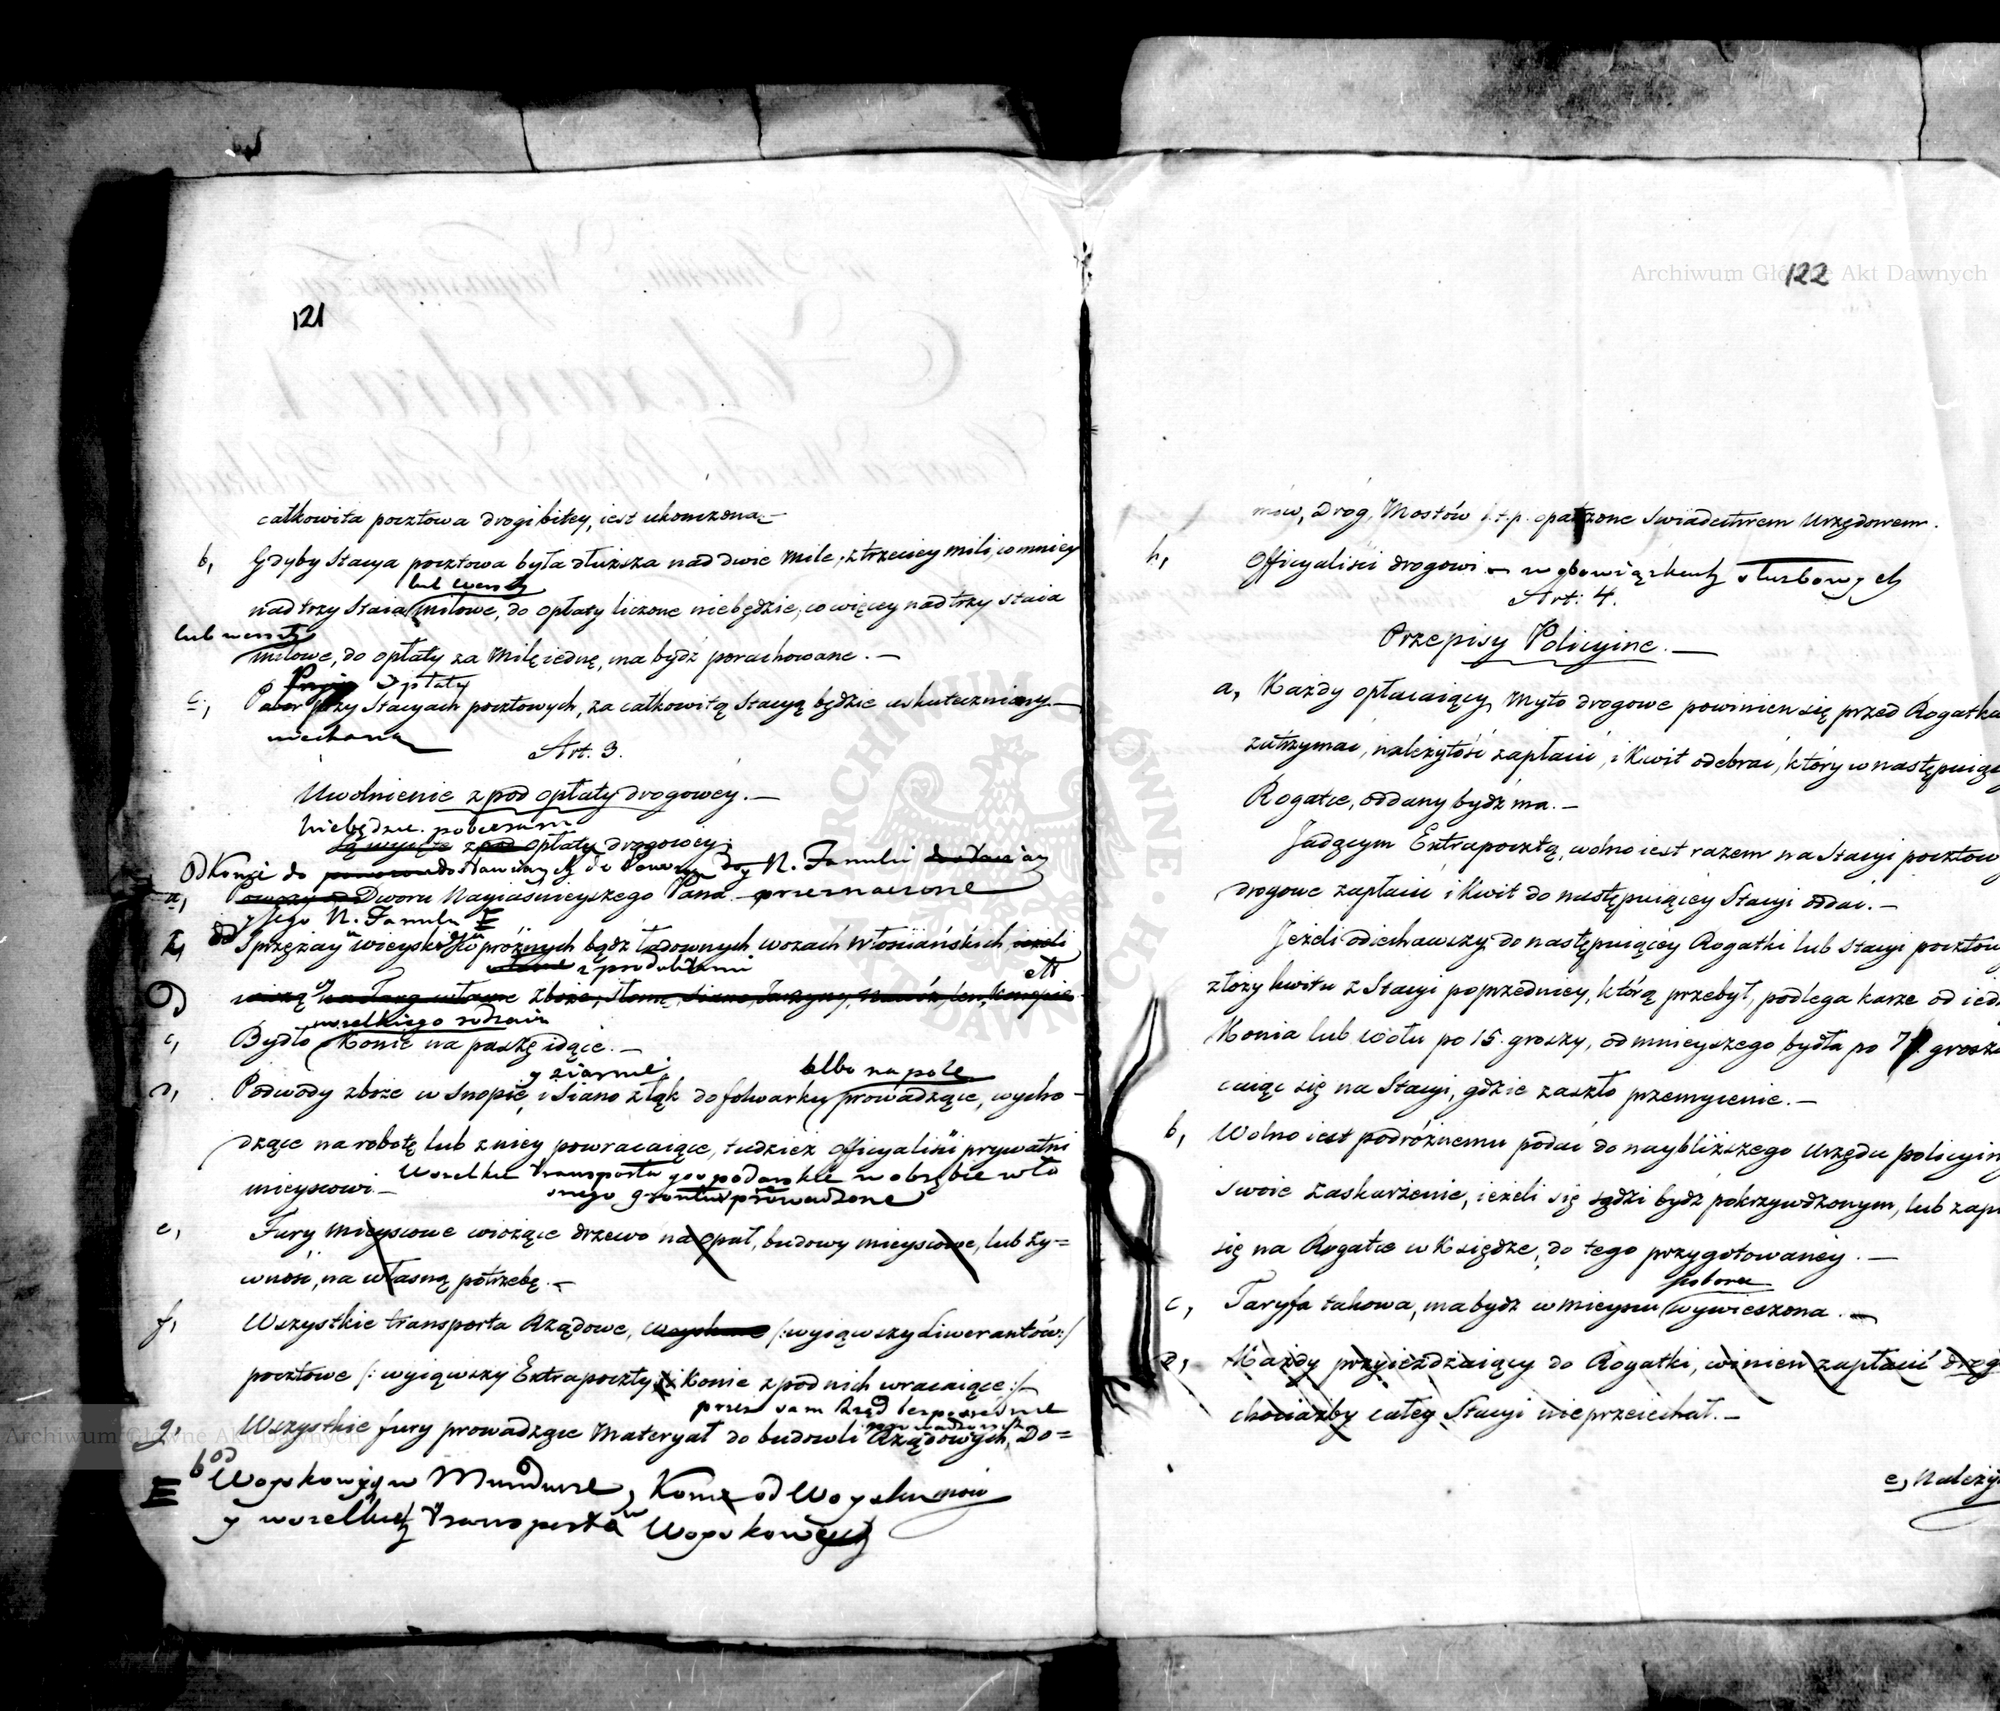 121
całkowita pocztowa drogi bitey, iest ukończona.—
b, Gdyby Stacya pocztowa była dłuższa nad dwie Mile, z trzeciey mili, co mniey
lub wersty
nad trzy Staia milowe, do opłaty liczone niebędzie, co więcey nad trzy staia
lub wersty
milowe, do opłaty za Milę iednę, ma bydź porachowane.—
Opłaty
c, Pobór przy Stacyach pocztowych, za całkowitą Stacyą będzie uskuteczniany.—
Art. 3.
Uwolnienie z pod opłaty drogowey.—
Niebędzie pobierana
są wyięte z pod opłaty drogowey,
Od Koni do
a, Dworu Nayiaśnieyszego Pana przeznaczone
y Jego N. Familii
od Sprzężay wieyski próżnych bądź ładownych wozach Włościańskich, ieżeli
z produktami
wiozą na Targ własne Zboże, Słomę, Siano, Jarzyny, Nawóz, len, Konopie
wszelkiego rodzaiu
c, Bydło Konie na paszę idące.—
y ziarnie albo na pole
d, Podwody zboże w Snopie, i Siano z łąk do folwarku prowadzące, wycho-
dzące na robotę lub z niey powracaiące, tudzież Officyaliści prywatni
mieyscowi.— Wszelkie transporta gospodarskie w obrębie wła
snego gruntu prowadzone
e, Fury mieyscowe wiozące drzewo na opał, budowy mieyscowe, lub ży=
wność, na własną potrzebę.—
f, Wszystkie transporta Rządowe, woyskowe /:wyiąwszy liwerantów:/
pocztowe /:wyiąwszy Extrapoczty i Konie z pod nich wracaiące:/—
przez sam Rząd bezpośrednie
g, Wszystkie fury prowadzące Materyał do budowli Rządowych, Do=
od
Woyskowych w Mundurze, Konie od Woysku
y wszelkich transporta Woyskowych
122
mów, Dróg, Mostów i.t.p. opatrzone Swiadectwem Urzędowem.
h, Officyaliści drogowi w obowiązkach służbowych
Art: 4.
Przepisy Policyine.—
a, Każdy opłacaiący Myto drogowe powinien się przed Rogatką
zatrzymać, należytość zapłacić, i Kwit odebrać, który w następuiącey
Rogatce, oddany bydź ma.—
Jadącym Extrapocztą, wolno iest razem na Stacyi pocztow
drogowe zapłacić i Kwit do następuiącey Stacyi oddać.—
Jeżeli odiechawszy do następuiącey Rogatki lub Stacyi pocztow
złoży kwitu z Stacyi poprzedniey, którą przebył, podlega karze od ied
Konia lub wołu po 15. groszy, od mnieyszego bydła po 7 grosz
caiąc się na Stacyi, gdzie zaszło przemycenie.—
b, Wolno iest podróżnemu podać do naybliższego Urzędu policyin
swoie zaskarżenie, ieżeli się sądzi bydź pokrzywdzonym, lub zapi
się na Rogatce w Księdze, do tego przygotowaney.—
poboru
c, Taryfa takowa, ma bydź w mieyscu wywieszona.—
d, Każdy przyieżdzaiący do Rogatki, winien zapłacić drog
chociażby całey Stacyi nieprzeiechał.—
e, Należy
Archiwum Główne Akt Dawnych
Archiwum Główne Akt Dawnych
ARCHIWUM GŁÓWNE AKT DAWNYCH